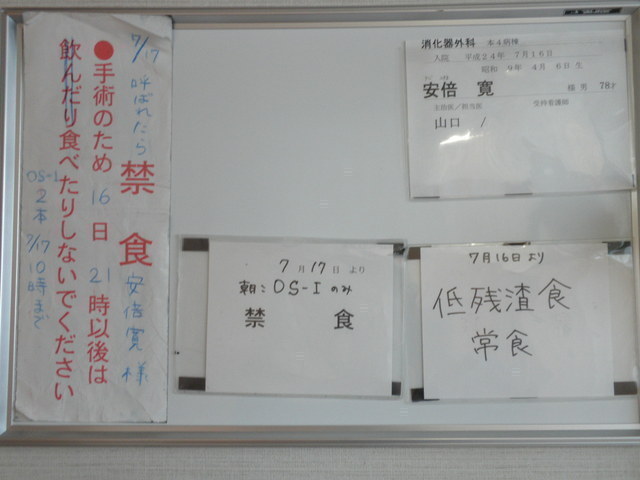 7/17 呼ばれたら
禁食
安倍寛様
●手術のため16日21時以後は
飲んだり食べたりしないでください
OS-1 2本 7/17 10時まで
消化器外科 本4病棟
入院 平成24年 7月16日
昭和 9年 4月 6日生
安倍 寛 様 男 78才
主治医/担当医 受持看護師
山口 /
7月17日より
朝:OS-1のみ
禁 食
7月16日より
低残渣食
常食